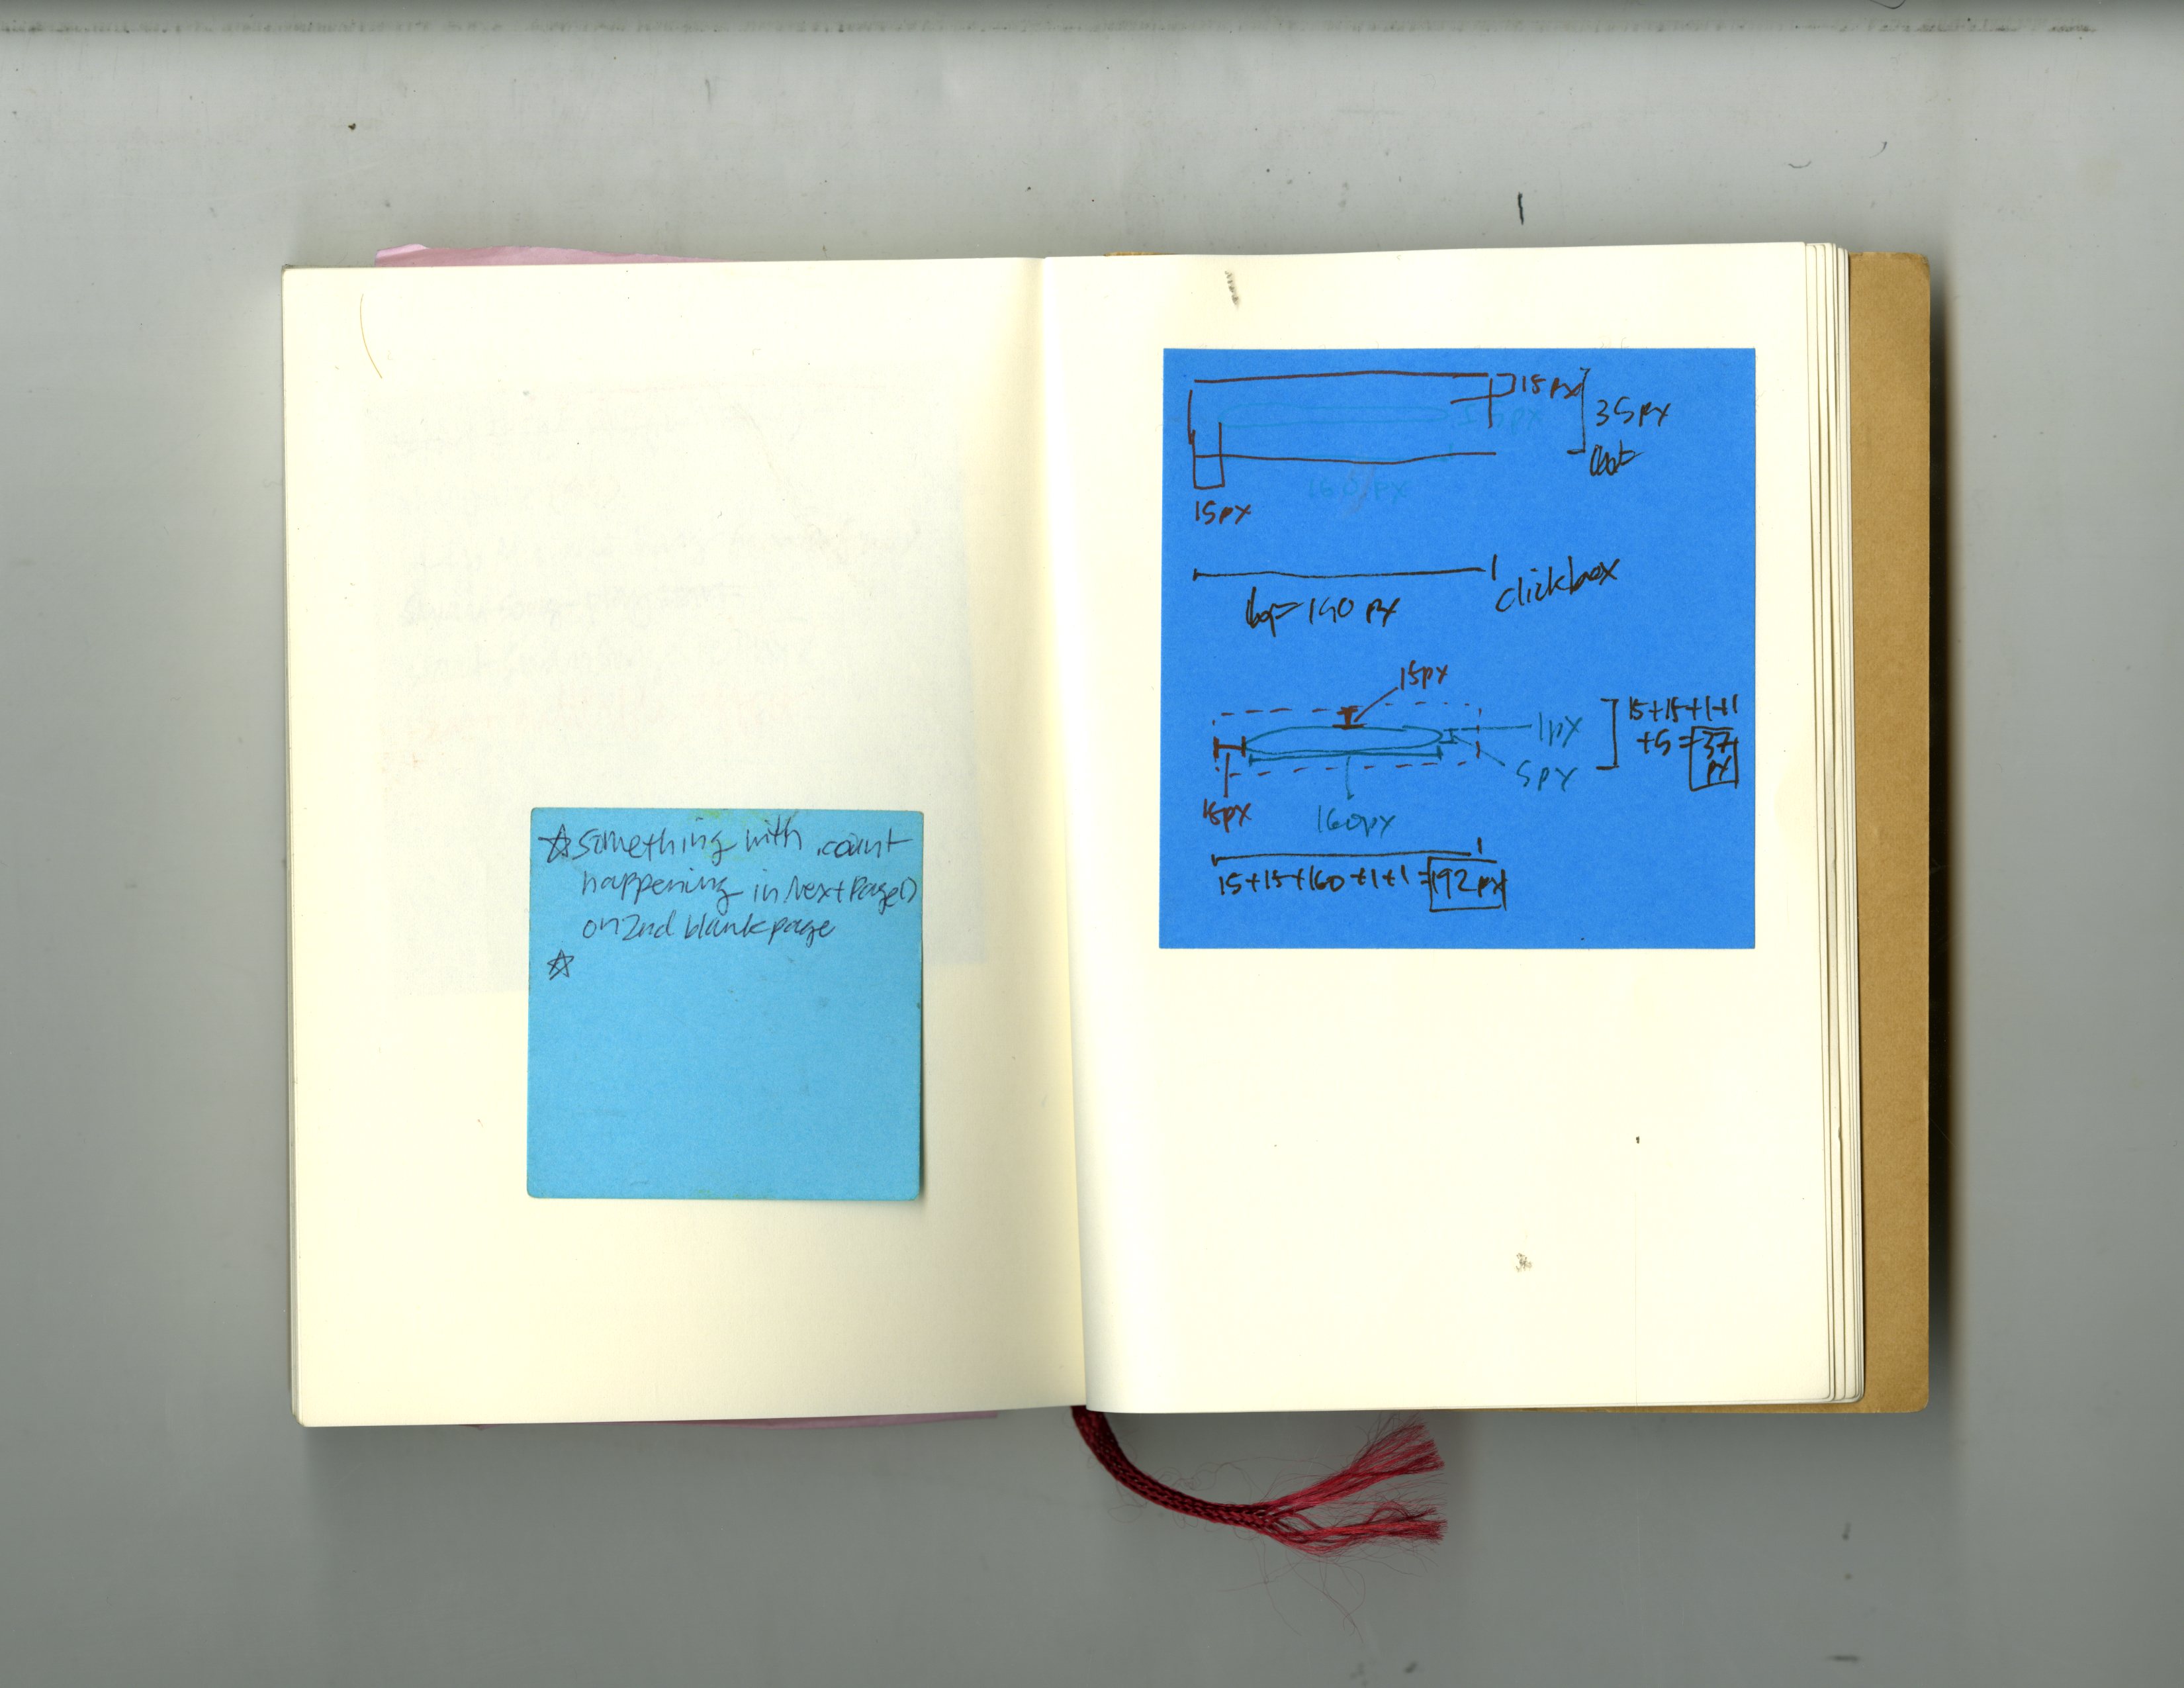 ☆ something with .count
happening in NextPage()
on 2nd blank page
☆
15px
35px
160px
15px
clickbox
190 px
15px
1px
5px
15+15+1+1
+5=37
px
15px
160px
15+15+160+1+1=192px